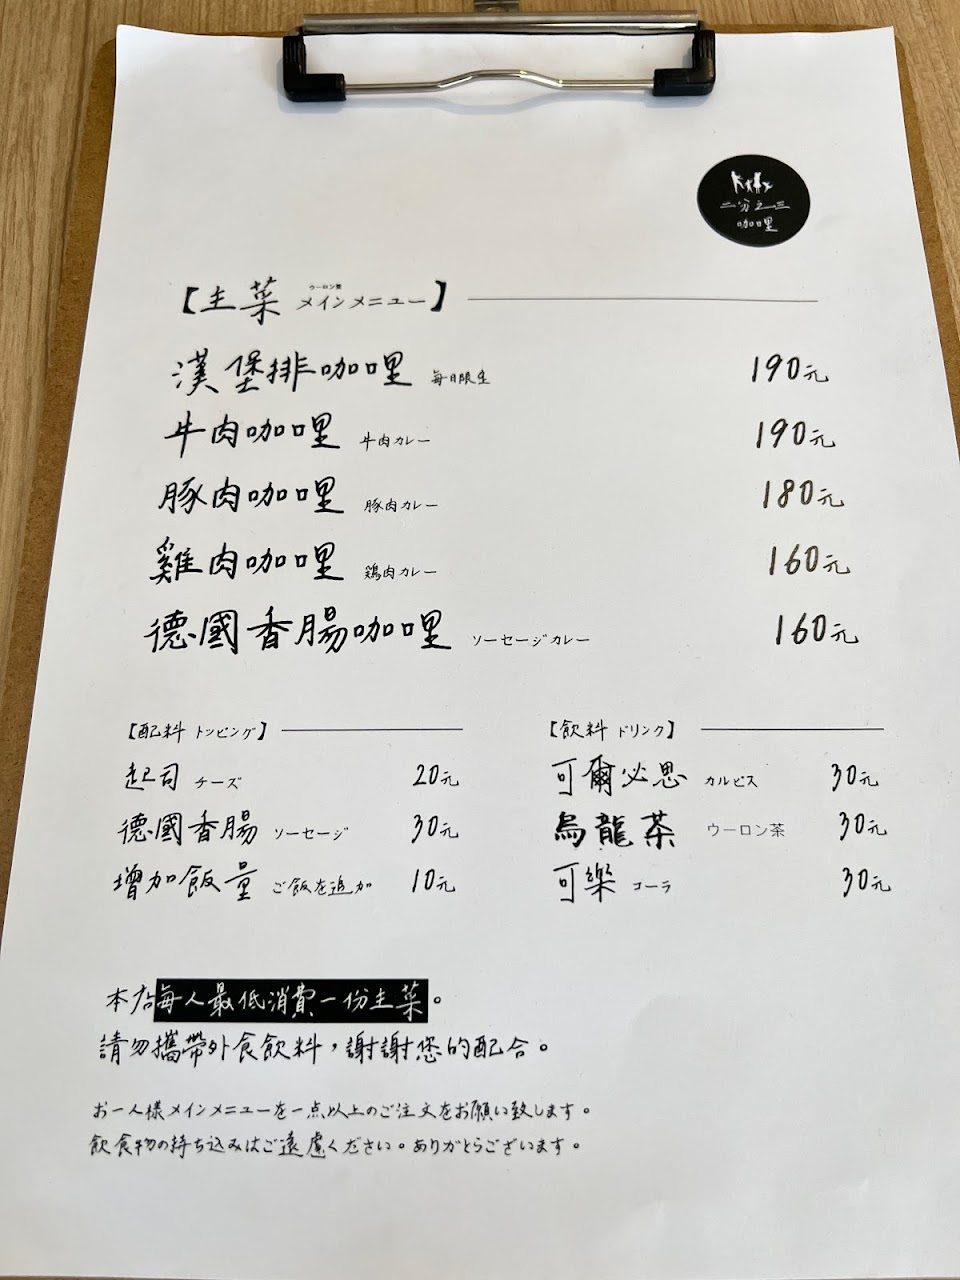 二分之三
咖哩
ウーロン茶
【主菜 メインメニュー】
漢堡排咖哩 每日限定 190元
牛肉咖哩 牛肉カレー 190元
豚肉咖哩 豚肉カレー 180元
雞肉咖哩 鶏肉カレー 160元
德國香腸咖哩 ソーセージカレー 160元
【配料 トッピング】
起司 チーズ 20元
德國香腸 ソーセージ 30元
增加飯量 ご飯を追加 10元
【飲料 ドリンク】
可爾必思 カルピス 30元
烏龍茶 ウーロン茶 30元
可樂 コーラ 30元
本店每人最低消費一份主菜。
請勿攜帶外食飲料，謝謝您的配合。
お一人様メインメニューを一点以上のご注文をお願い致します。
飲食物の持ち込みはご遠慮ください。ありがとうございます。